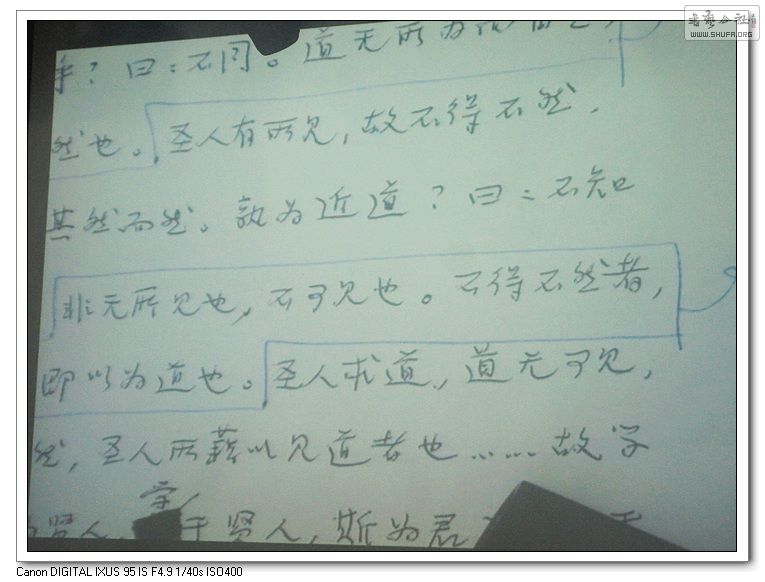 乎？曰：不同。道无所为而自
然也。圣人有所见，故不得不然，
其然而然。孰为近道？曰：不知
非无所见也，不可见也。不得不然者，
即以为道也。圣人求道，道无可见，
然，圣人所藉以见道者也……故学
学
贤人，于贤人，斯为君
书艺公社
WWW.SHUFA.ORG
Canon DIGITAL IXUS 95 IS F4.9 1/40s ISO400